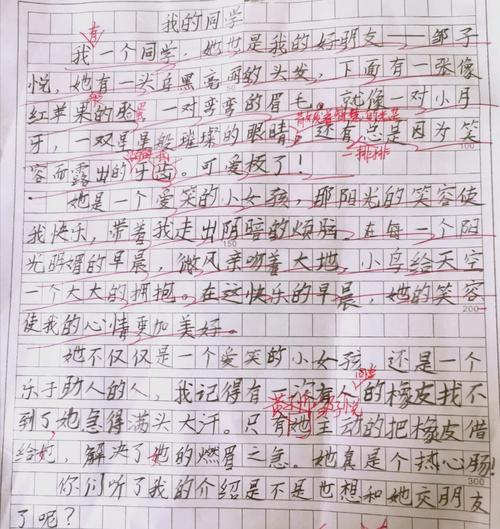 我的同学
有
我一个同学，她也是我的好朋友——邹子
悦，她有一头乌黑亮丽的头发，下面有一张像
红苹果的脸蛋，一对弯弯的眉毛。就像一对小月
牙，一双星星般璀璨的眼睛，还有总是因为笑
容而露出的牙齿。可爱极了！
一排排
她是一个爱笑的小女孩，那阳光的笑容使
我快乐，带着我走出阴暗的烦脑。在每一个阳
光明媚的早晨，微风亲吻着大地，小鸟给天空
一个大大的拥抱。在这快乐的早晨，她的笑容
使我的心情更加美好。
她不仅仅是一个爱笑的小女孩，还是一个
乐于助人的人，我记得有一次有人的橡皮找不
同学
到了她急得满头大汗。只有她主动的把橡皮借
邹子悦
给她，解决了她的燃眉之急。她真是个热心肠！
你们听了我的介绍是不是也想和她交朋友
了呢？
50
100
150
200
300